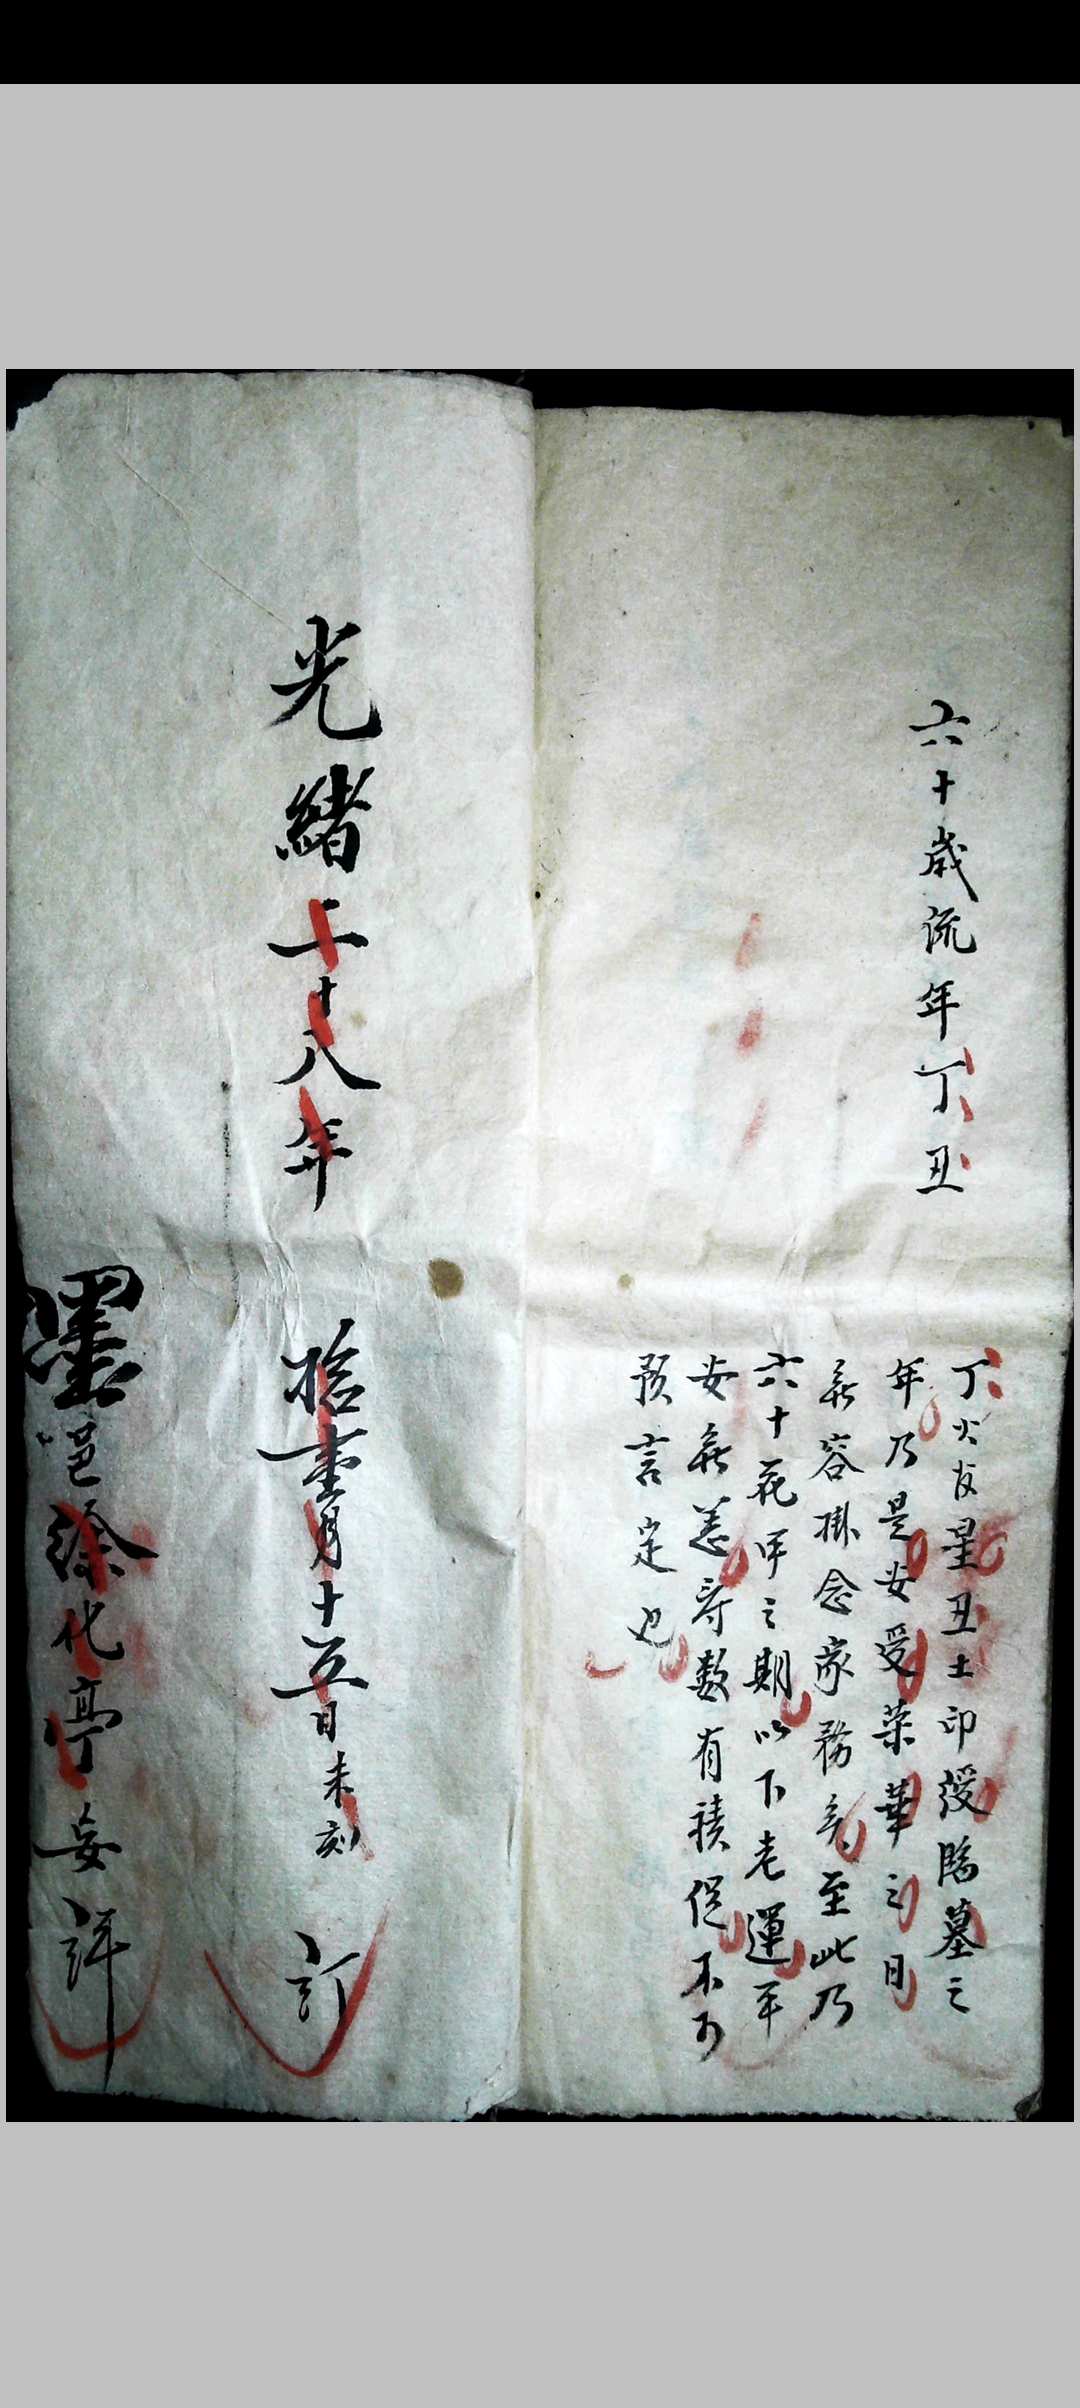 六十歲流年丁丑
丁火友星丑土印綬臨墓之
年乃是安受荣華之日
無容掛念家務矣至此乃
六十花甲之期以下老運平
安無恙寿数有積促不可
預言定也
光緒二十八年 拾壹月十五日未刻 訂
墨邑徐化亭妄評